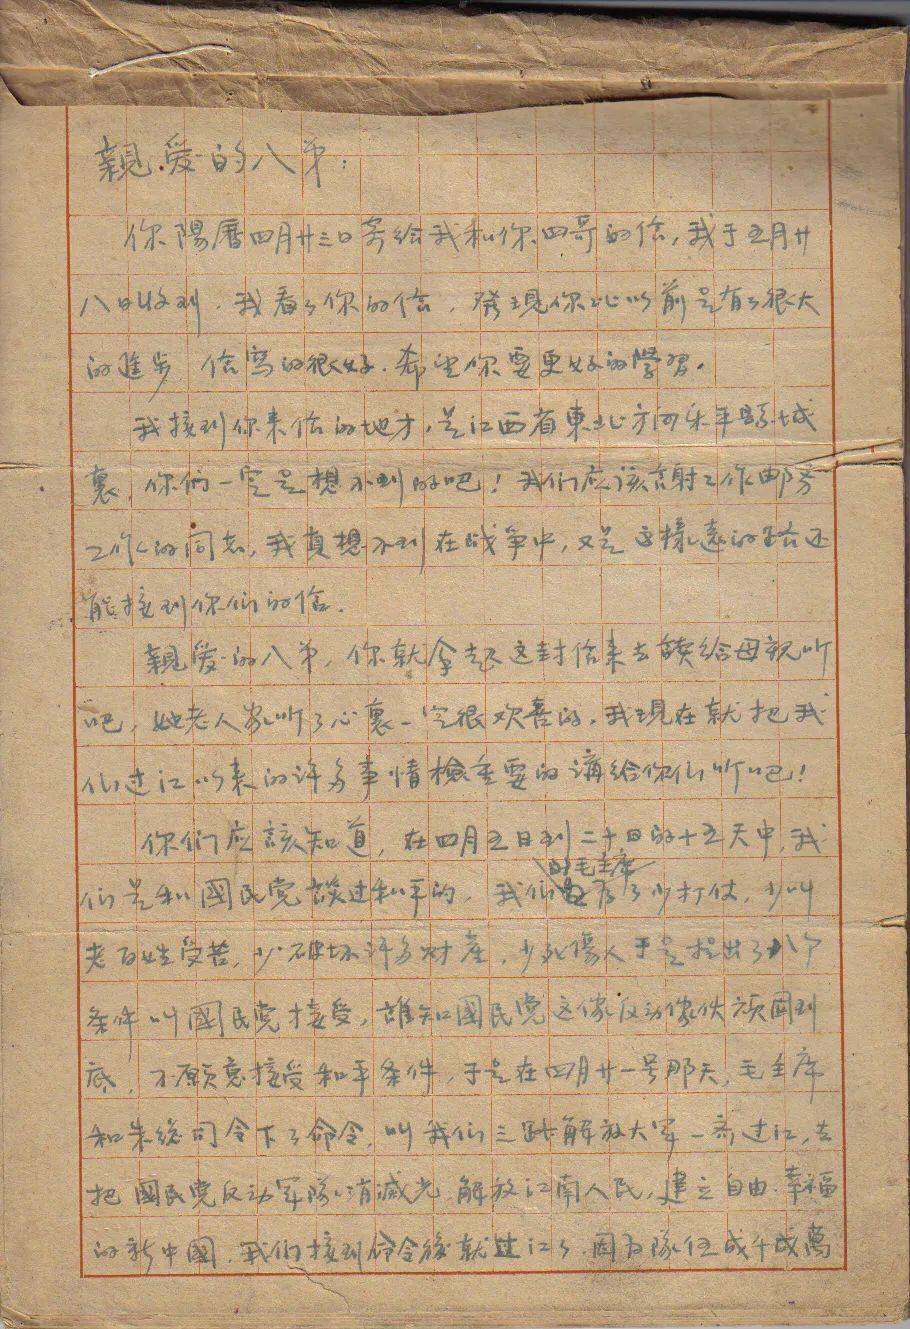 親爱的八弟：
你陽曆四月廿三日寄給我和你四哥的信，我于五月廿
八日收到．我看了你的信，發現你比以前是有了很大
的進步 信寫的很好．希望你要更好的學習。
我接到你来信的地方，是江西省東北方向乐平縣城
裏，你們一定是想不到的吧！我们应该謝謝工作郵务
工作的同志，我真想不到在战争中，又是这樣遠的路还
能接到你们的信．
親爱的八弟，你就拿起这封信来去讀给母親听
吧，她老人家听了心裏一定很欢喜的．我現在就把我
们过江以来的许多事情檢重要的講给你们听吧！
你们应該知道，在四月五日到二十日的十五天中，我
们是和國民党談过和平的，我们的毛主席为了少打仗，少叫
老百姓受苦，少破坏许多财産，少死傷人于是提出了八个
条件叫國民党接受，誰知國民党这伙反动傢伙顽固到
底，不願意接受和平条件，于是在四月廿一号那天，毛主席
和朱總司令下了命令，叫我们三路解放大军一齐过江，去
把國民党反动军隊消滅光，解放江南人民，建立自由．幸福
的新中國．我们接到命令後就过江了．因为隊伍成千成萬